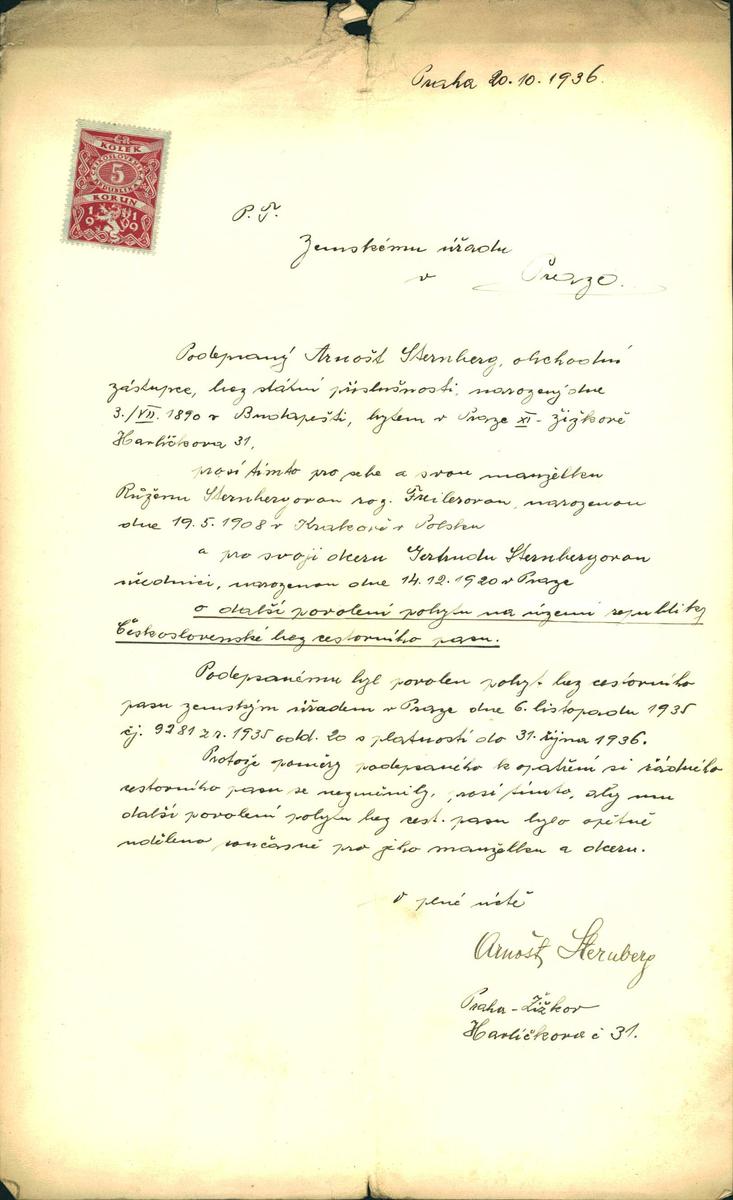 Praha 20.10.1936.
ČR
KOLEK
ČESKOSLOVENSKÁ
REPUBLIKA
5
KORUN
1919
P. T.
Zemskému úřadu
v Praze.
Podepsaný Arnošt Sternberg, obchodní
zástupce, bez státní příslušnosti, narozený dne
3./VII. 1890 v Budapešti, bytem v Praze XI - Žižkově
Havlíčkova 31,
prosí tímto pro sebe a svou manželku
Růženu Sternbergovou roz. narozenou
dne 19.5.1908 v Krakově v Polsku
a pro svoji dceru Gertrudu Sternbergovou
úřednici, narozenou dne 14.12.1920 v Praze
o další povolení pobytu na území republiky
Československé bez cestovního pasu.
Podepsanému byl povolen pobyt bez cestovního
pasu zemským úřadem v Praze dne 6. listopadu 1935
čj. 9281 z r. 1935 odd. 20 s platností do 31. října 1936.
Protože poměry podepsaného k opatření si řádného
cestovního pasu se nezměnily, prosí tímto, aby mu
další povolení pobytu bez cest. pasu bylo opětně
uděleno současně pro jeho manželku a dceru.
V plné úctě
Arnošt Sternberg
Praha - Žižkov
Havlíčkova č 31.